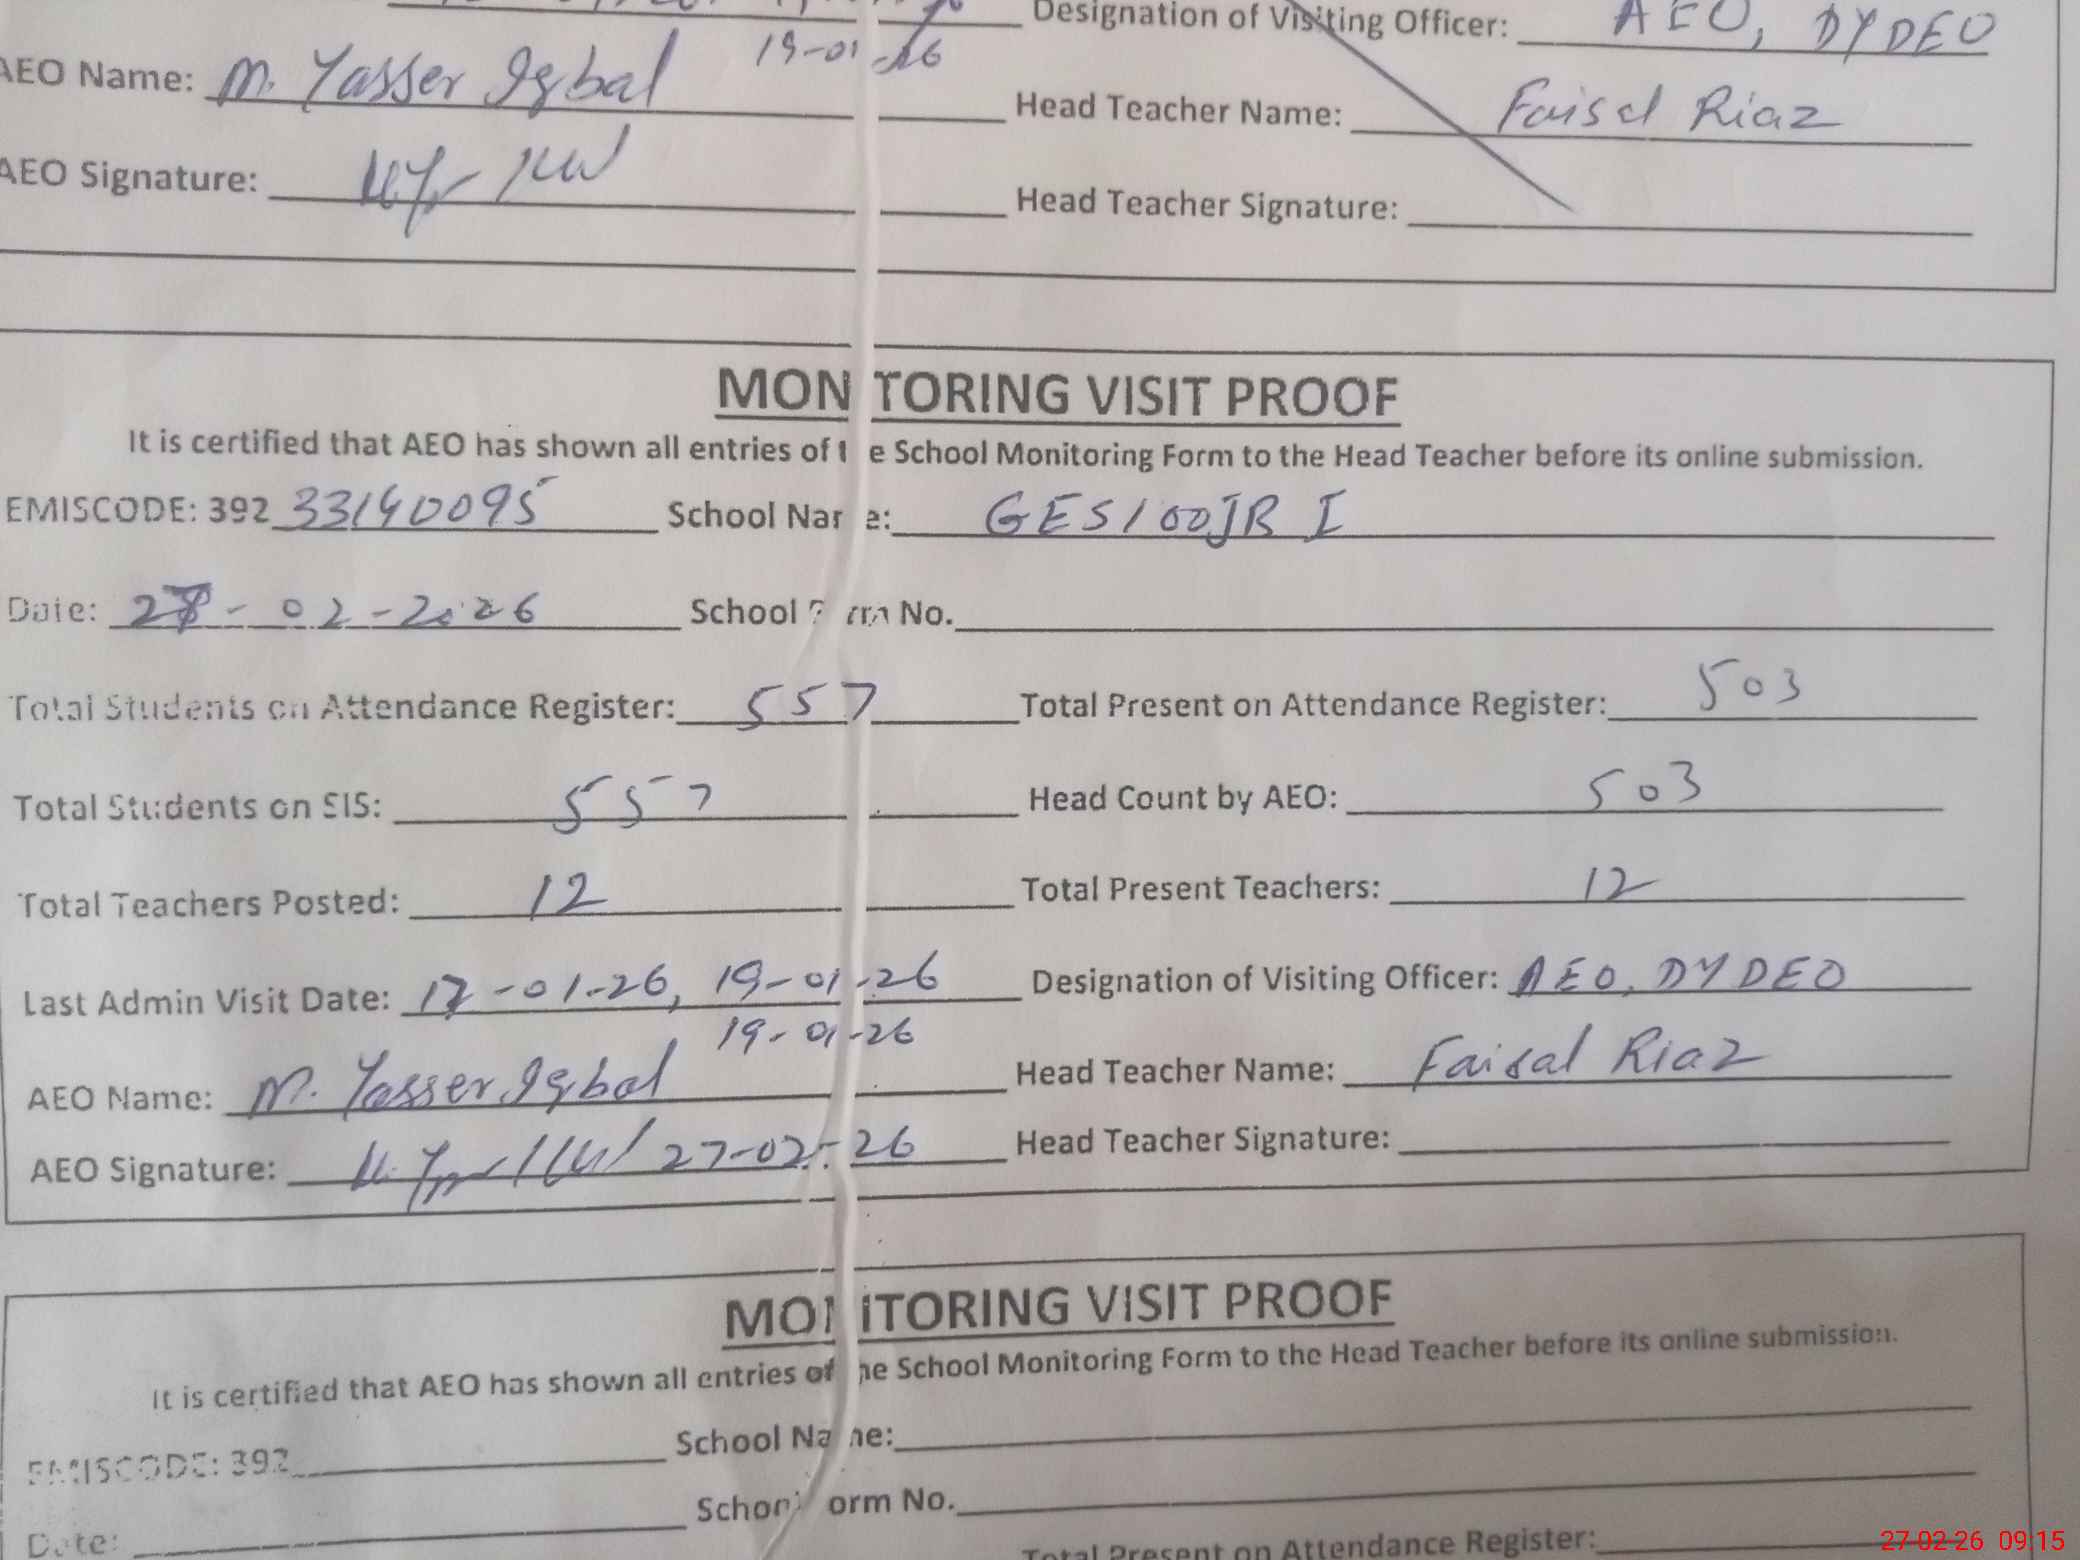 Designation of Visiting Officer: AEO, DYDEO
19-01-26
AEO Name: M. Yasser Iqbal Head Teacher Name: Faisal Riaz
AEO Signature: Head Teacher Signature:
MON TORING VISIT PROOF
It is certified that AEO has shown all entries of t e School Monitoring Form to the Head Teacher before its online submission.
EMISCODE: 392 33140095 School Nar e: GES100JB I
Date: 27-02-2026 School rm No.
Total Students on Attendance Register: 557 Total Present on Attendance Register: 503
Total Students on SIS: 557 Head Count by AEO: 503
Total Teachers Posted: 12 Total Present Teachers: 12
Last Admin Visit Date: 17-01-26, 19-01-26 Designation of Visiting Officer: AEO, DYDEO
19-01-26
AEO Name: M. Yasser Iqbal Head Teacher Name: Faisal Riaz
AEO Signature: 27-02-26 Head Teacher Signature:
MON ITORING VISIT PROOF
It is certified that AEO has shown all entries of he School Monitoring Form to the Head Teacher before its online submission.
EMISCODE: 392 School Na ne:
Date: School orm No.
Total Present on Attendance Register:
27-02-26 09:15